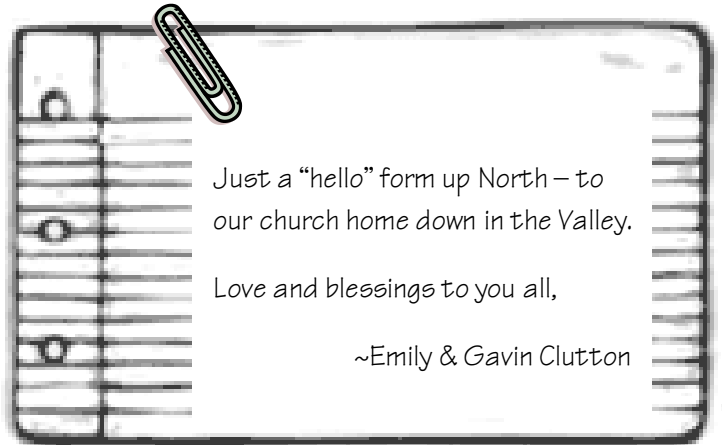 Just a “hello” form up North – to
our church home down in the Valley.
Love and blessings to you all,
~Emily & Gavin Clutton